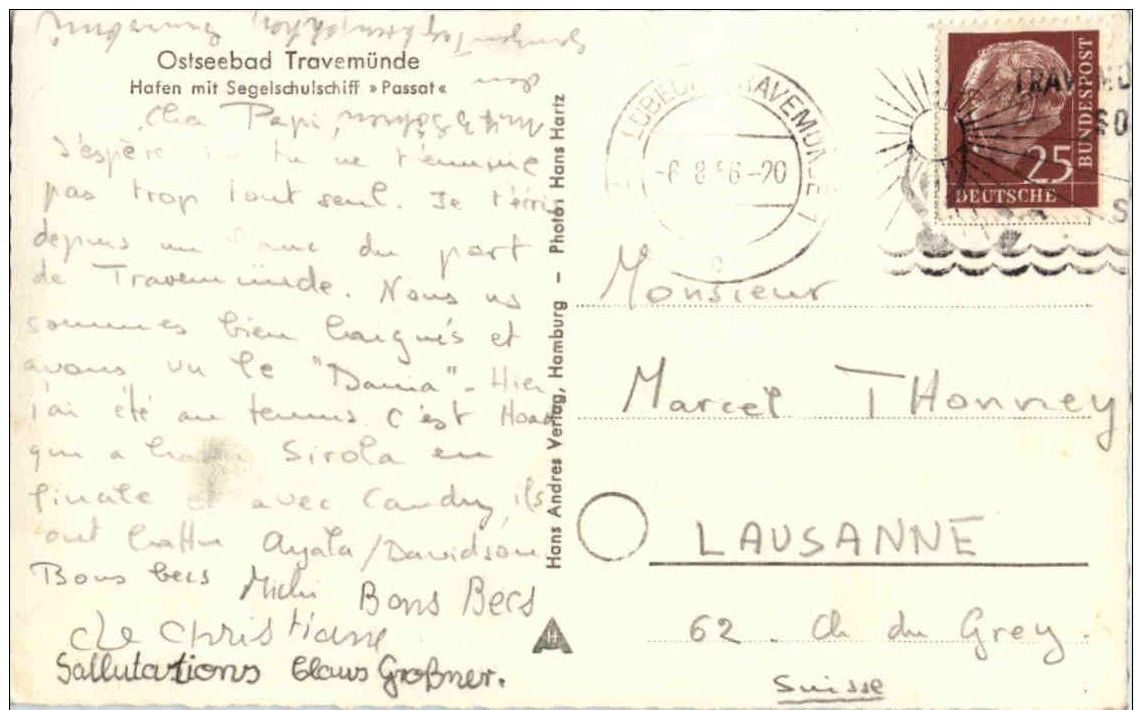 Ostseebad Travemünde
Hafen mit Segelschulschiff »Passat«
Cher Papi,
J'espère tu ne t'ennuie
pas trop tout seul. Je t'écris
depuis un banc du port
de Travemünde. Nous ns
sommes bien baignés et
avons vu le "Dania". Hier
j'ai été au tennis c'est Hoad
qui a battu Sirola en
finale et avec Candy, ils
ont battu Ayala/Davidson
Bons becs Michi Bons Becs
de Christiane
Sallutations Claus Großner.
Hans Andres Verlag, Hamburg – Photo: Hans Hartz
H
LÜBECK-TRAVEMÜNDE 1
-6.8.56-20
c
TRAVEMÜ
SO
S
25
DEUTSCHE
BUNDESPOST
Monsieur
Marcel THonney
LAUSANNE
62. Ch du Grey.
Suisse